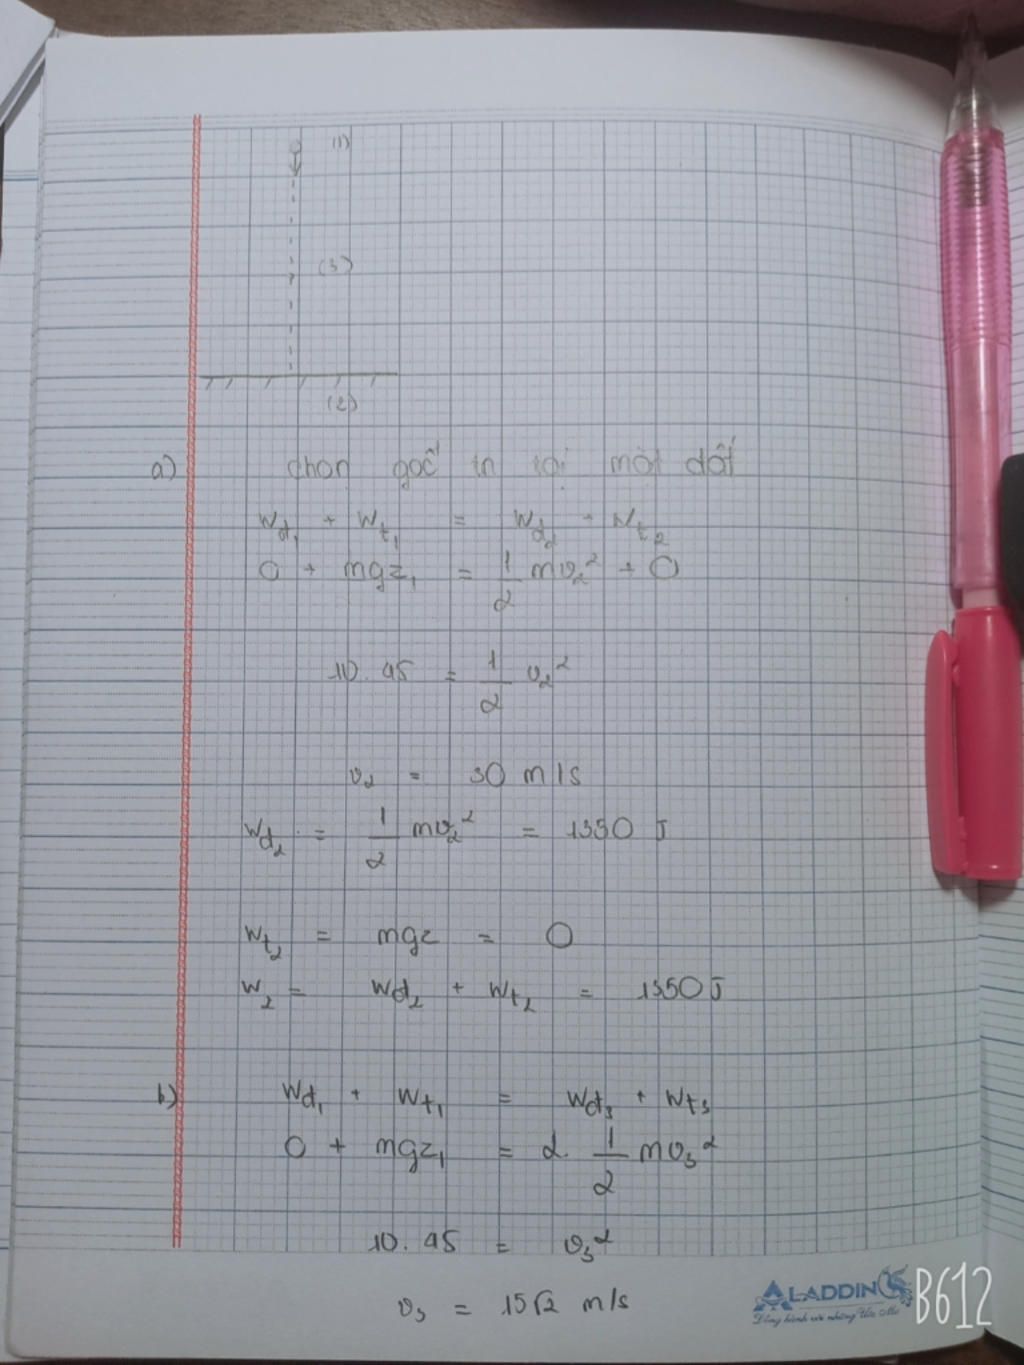 (1)
(3)
(2)
a) chọn gốc tn tại mặt đất
Wđ₁ + Wt₁ = Wđ₂ + Wt₂
0 + mgz₁ = 1/2 mv₂² + 0
10.45 = 1/2 v₂²
v₂ = 30 m/s
Wđ₂ = 1/2 mv₂² = 1350 J
Wt₂ = mgz = 0
W₂ = Wđ₂ + Wt₂ = 1350 J
b) Wđ₁ + Wt₁ = Wđ₃ + Wt₃
0 + mgz₁ = 2. 1/2 mv₃²
10.45 = v₃²
v₃ = 15√2 m/s
ALADDIN
Đồng hành với những Ước Mơ
B612